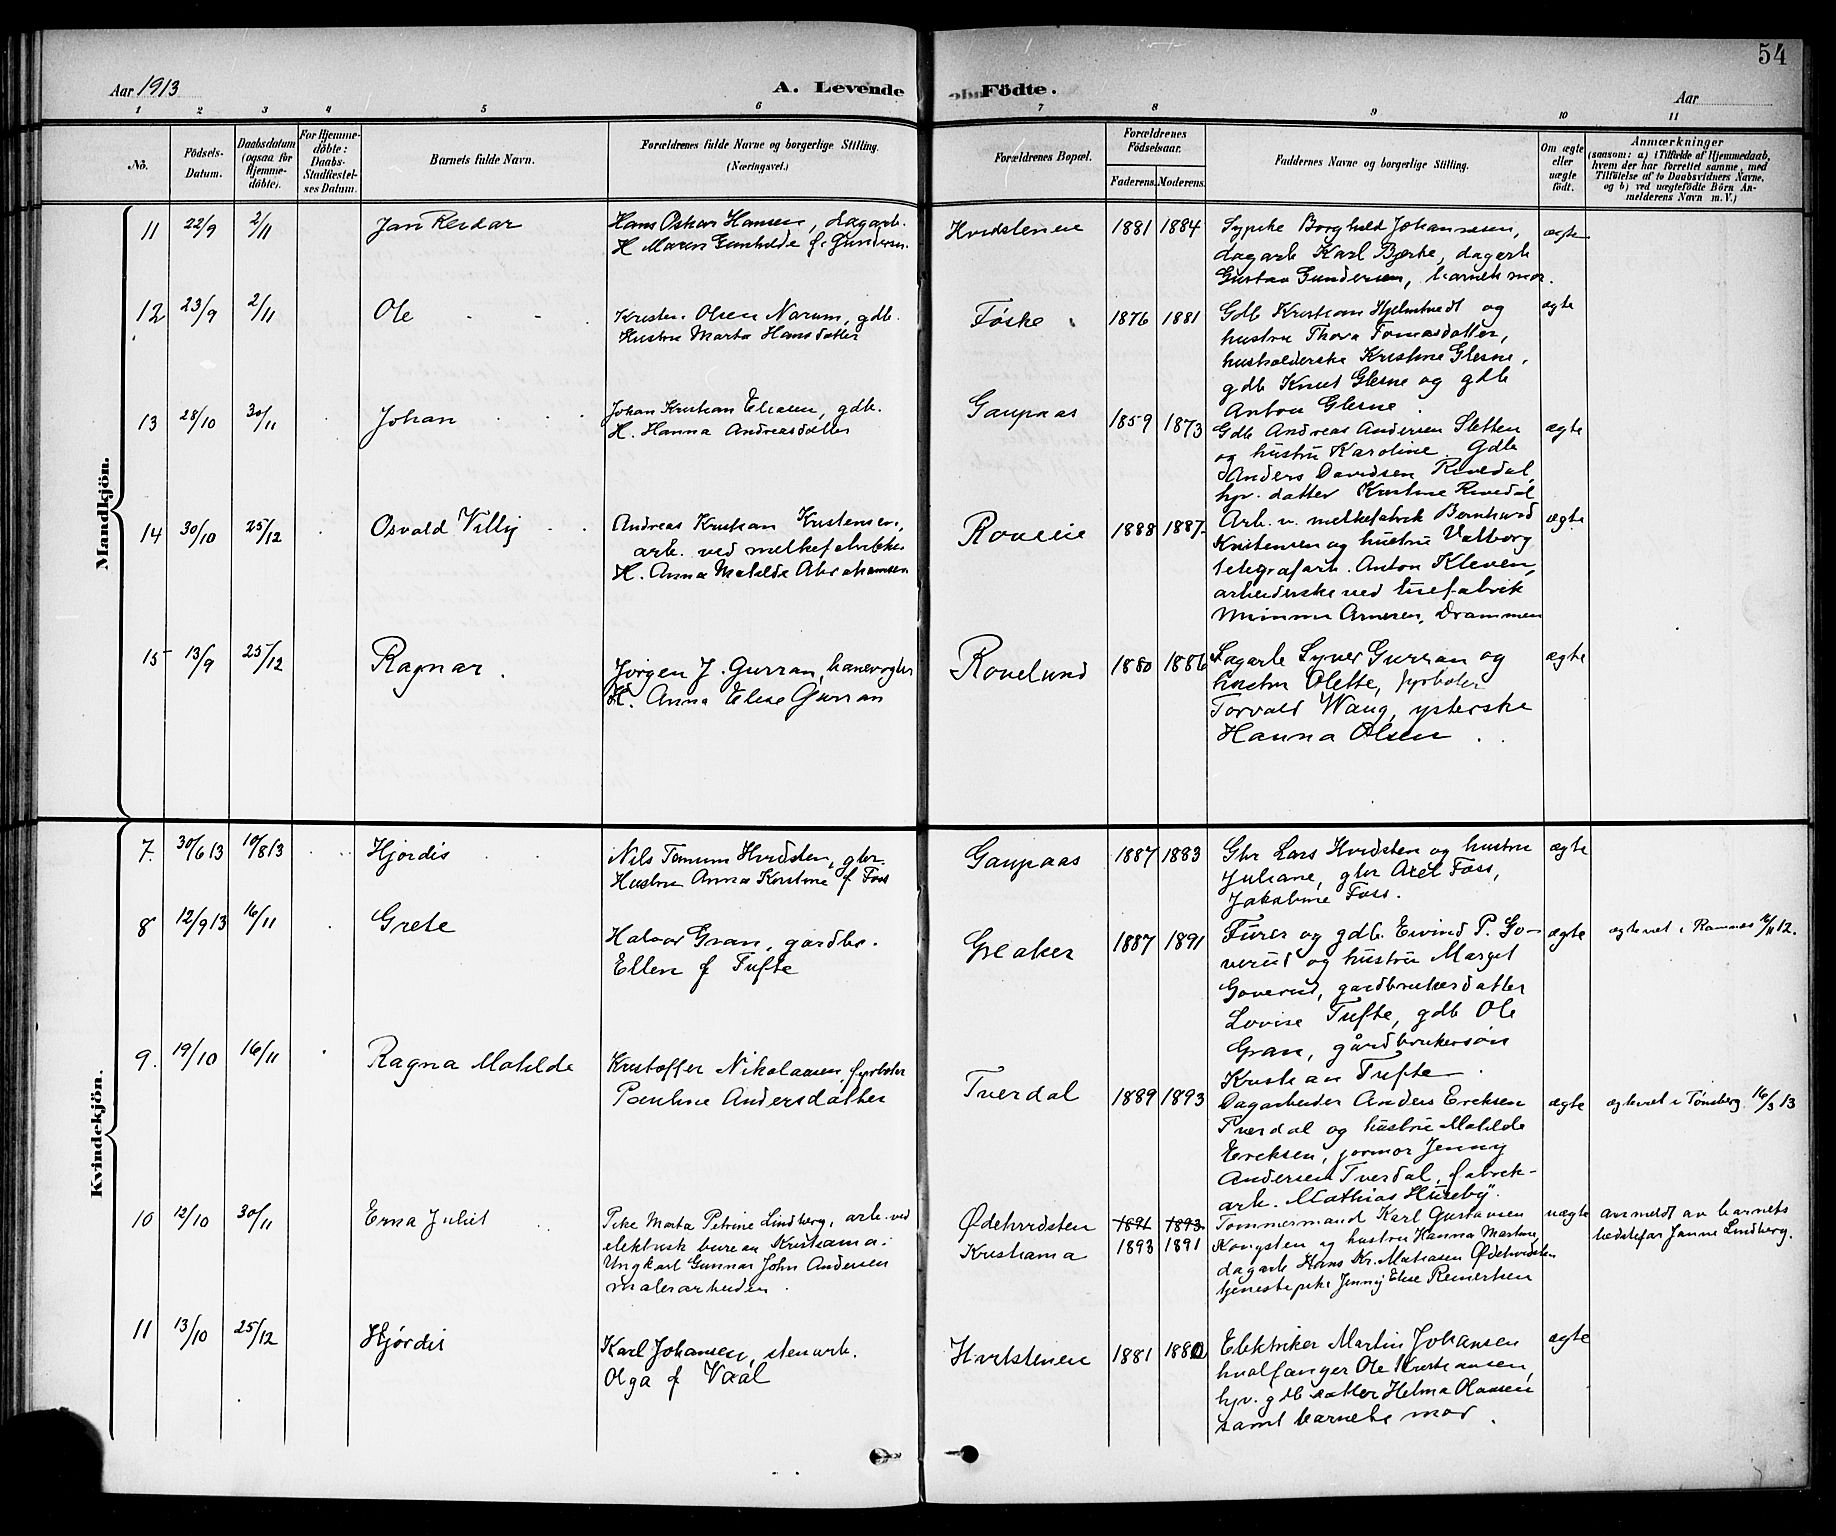 54
Aar 1913
A. Levende
Födte.
Aar
1 2 3 4 5 6 7 8 9 10 11
Nö.
Födsels-Datum.
Daabsdatum (ogsaa for Hjemme-döbte).
For Hjemme-döbte: Daabs-Stadfæstel-ses Datum.
Barnets fulde Navn.
Forældrenes fulde Navne og borgerlige Stilling. (Næringsvei.)
Forældrenes Bopæl.
Forældrenes Födselsaar.
Faderens. Moderens.
Faddernes Navne og borgerlige Stilling.
Om ægte eller uægte födt.
Anmærkninger
(saasom: a) i Tilfælde af Hjemmedaab,
hvem der har forrettet samme, med
Tilföielse af to Daabsvidners Navne,
og b) ved uægtefödte Börn An-
melderens Navn m. V.)
Mandkjön.
11 22/9 2/11 Jan Reidar
Hans Oskar Hansen, dagarb.
H. Maren Gunhilde f. Gundersen
Hvidsteneie 1881 1884
Sypike Borghild Johannesen,
dagarb Karl Bjerke, dagarb
Gustav Gundersen, barnets mor.
ægte
12 23/9 2/11 Ole
Kristen Olsen Narum, gdb.
Hustru Marta Hansdatter
Føske 1876 1881
Gdb Kristian Hjelmtvedt og
hustru Thora Tomasdatter,
husholderske Kristine Glesne,
gdb Knut Glesne og gdb
Anton Glesne.
ægte
13 28/10 30/11 Johan
Johan Kristian Eliasen, gdb.
H. Hanna Andreasdatter
Gaupaas 1859 1873
Gdb Andreas Andersen Sletten
og hustru Karoline. Gdb
Anders Davidsen Revedal,
hjv. datter Kristine Revedal
ægte
14 30/10 25/12 Osvald Villy
Andreas Kristian Kristensen,
arb. ved melkefabrikken
H. Anna Matilde Abrahamsen
Roveeie 1888 1887
Arb. v. melkefabrik Bernhard
Kristensen og hustru Valborg
telegrafarb. Anton Kleven,
arbeiderske ved
Drammen
ægte
15 13/9 25/12 Ragnar.
Jørgen J. Gurran, banevogter
H. Anna Elise Gurran
Rovelund 1880 1886
Syver Gurran og
hustru Olette, fyrbøter
Torvald Wang, ysterske
Hanna Olsen.
ægte
Kvindekjön.
7. 30/6 13 10/8 13 Hjørdis
Nils Hvidsten, gbr.
Hustru Anna Kristine f Foss
Gaupaas 1887 1883
Gbr Lars Hvidsten og hustru
Juliane, gbr Axel Foss,
Jakobine Foss.
ægte
8 12/9 13 16/11 Grete
Halvor Gran, gardbr.
Ellen f Tufte
Greaker 1887 1891
Furer og gdb. Eivind P. Go-
verud og hustru Marget
Goverud, gardbrukersdatter
Lovise Tufte, gdb Ole
Gran, gårdbrukersøn
Kristian Tufte.
ægte
ægteviet i Ramnes 12.
9. 19/10 16/11 Ragna Matilde
Kristoffer Nikolaisen, fyrbøter
Pauline Andersdatter
Tverdal 1889 1893
Dagarbeider Anders Ericksen
Tverdal og hustru Matilde
Ericksen, jormor Jenny
Andersen Tverdal, fabrik-
arb. Mathias Huseby.
ægte
ægteviet i Tønsberg 16/3 13
10 12/10 30/11 Erna Juliet
Pike Marta Petrine Lindberg, arb. ved
elektrisk bureau Kristiania.
Ungkarl Gunnar John Andersen
malerarbeider.
Ødehvidsten
Kristiania
1891 1893
1893 1891
Tømmermand Karl Gustavsen
Kongsten og hustru Hanna Martine,
dagarb Hans Kr. Mathiasen Ødehvidsten
tjenestepike Jenny Elise Reinertsen
uægte
anmeldt av barnets
bedstefar Janne Lindberg.
11 13/10 25/12 Hjørdis
Karl Johansen, stenarb.
Olga f Vaal
Hvitsteneie 1881 1880
Elektriker Martin Johansen
hvalfanger Ole Kristiansen,
hjv. gdb datter Helma Olausen
samt barnets mor.
ægte